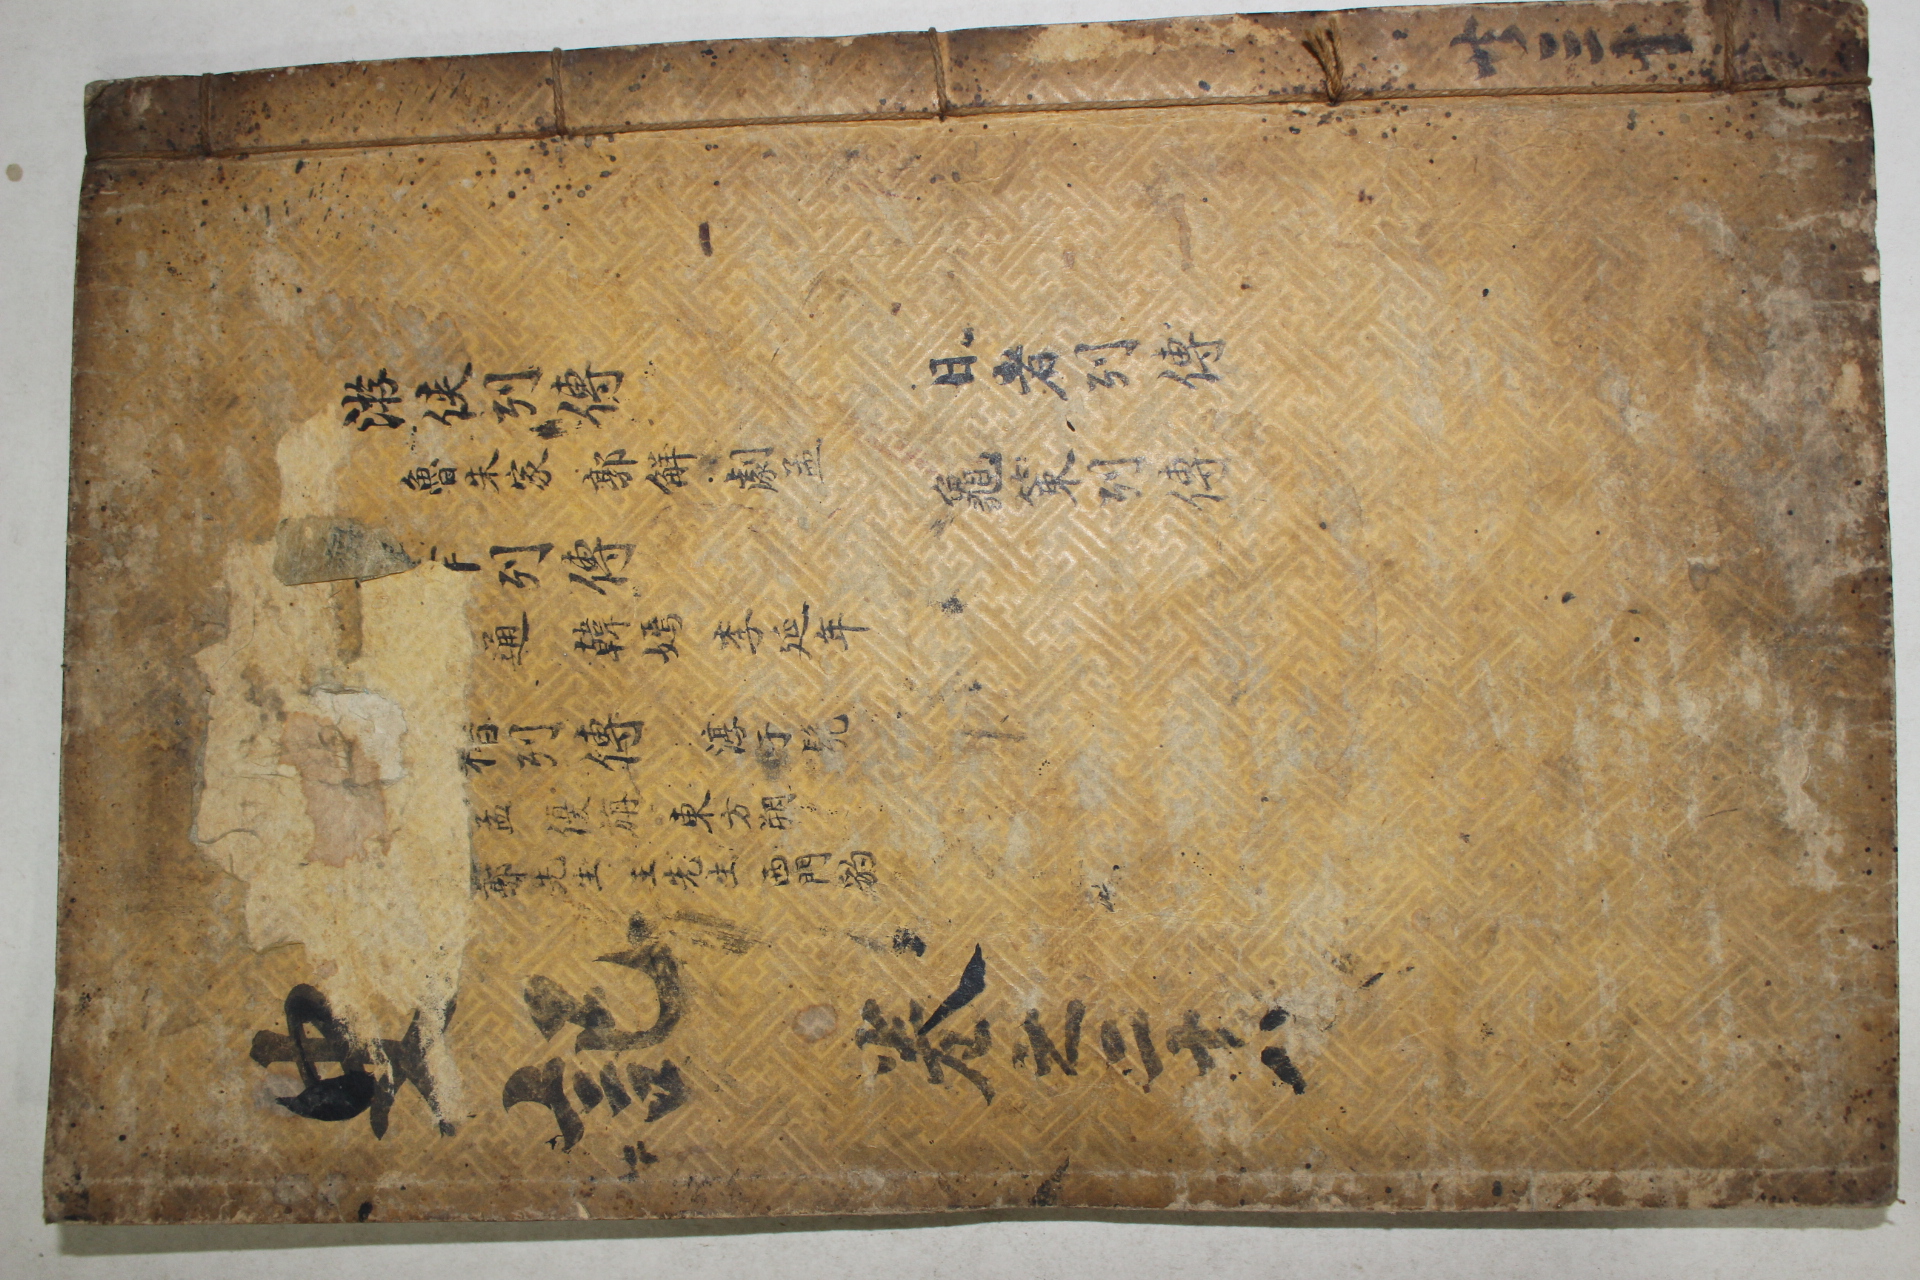 共三十
游俠列傳 日者列傳
魯朱家 郭解 劇孟 龜策列傳
列傳
通 韓嫣 李延年
稽列傳 淳于髡
孟 優旃 東方朔
郭先生 王先生 西門豹
史記 卷之二十八